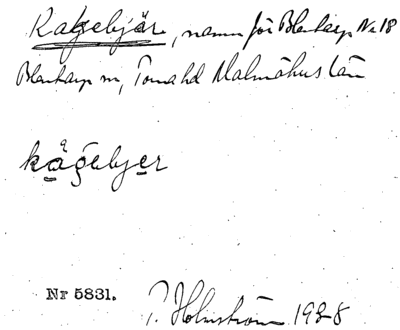 Kagebjär, namn för Blentarp No 18
Blentarp sn, Torna hd Malmöhus län
kågebjer
Nr 5831.
P. Holmström 1928